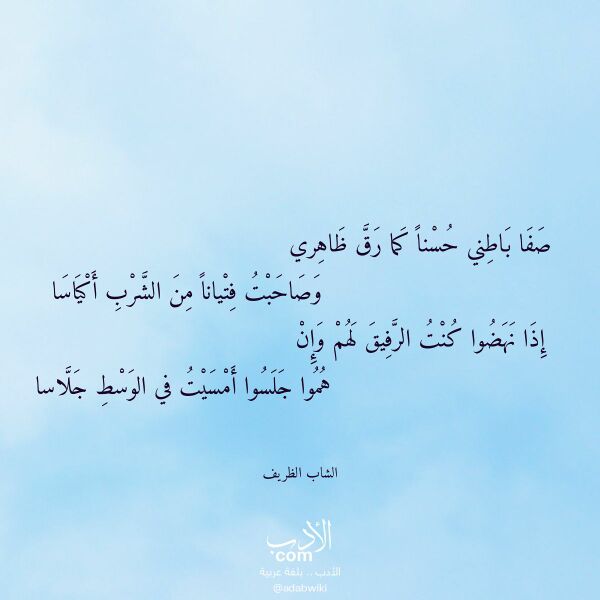 صَفَا بَاطِني حُسْناً كَما رَقَّ ظَاهِري
وَصَاحَبْتُ فِتْياناً مِنَ الشَّرْبِ أَكْيَاسَا
إِذَا نَهَضُوا كُنْتُ الرَّفِيقَ لَهُمْ وَإِنْ
هُمُوا جَلَسُوا أَمْسَيْتُ في الوَسْطِ جَلَّاسا
الشاب الظريف
الأدب
com
الأدب .. بلغة عربية
@adabwiki